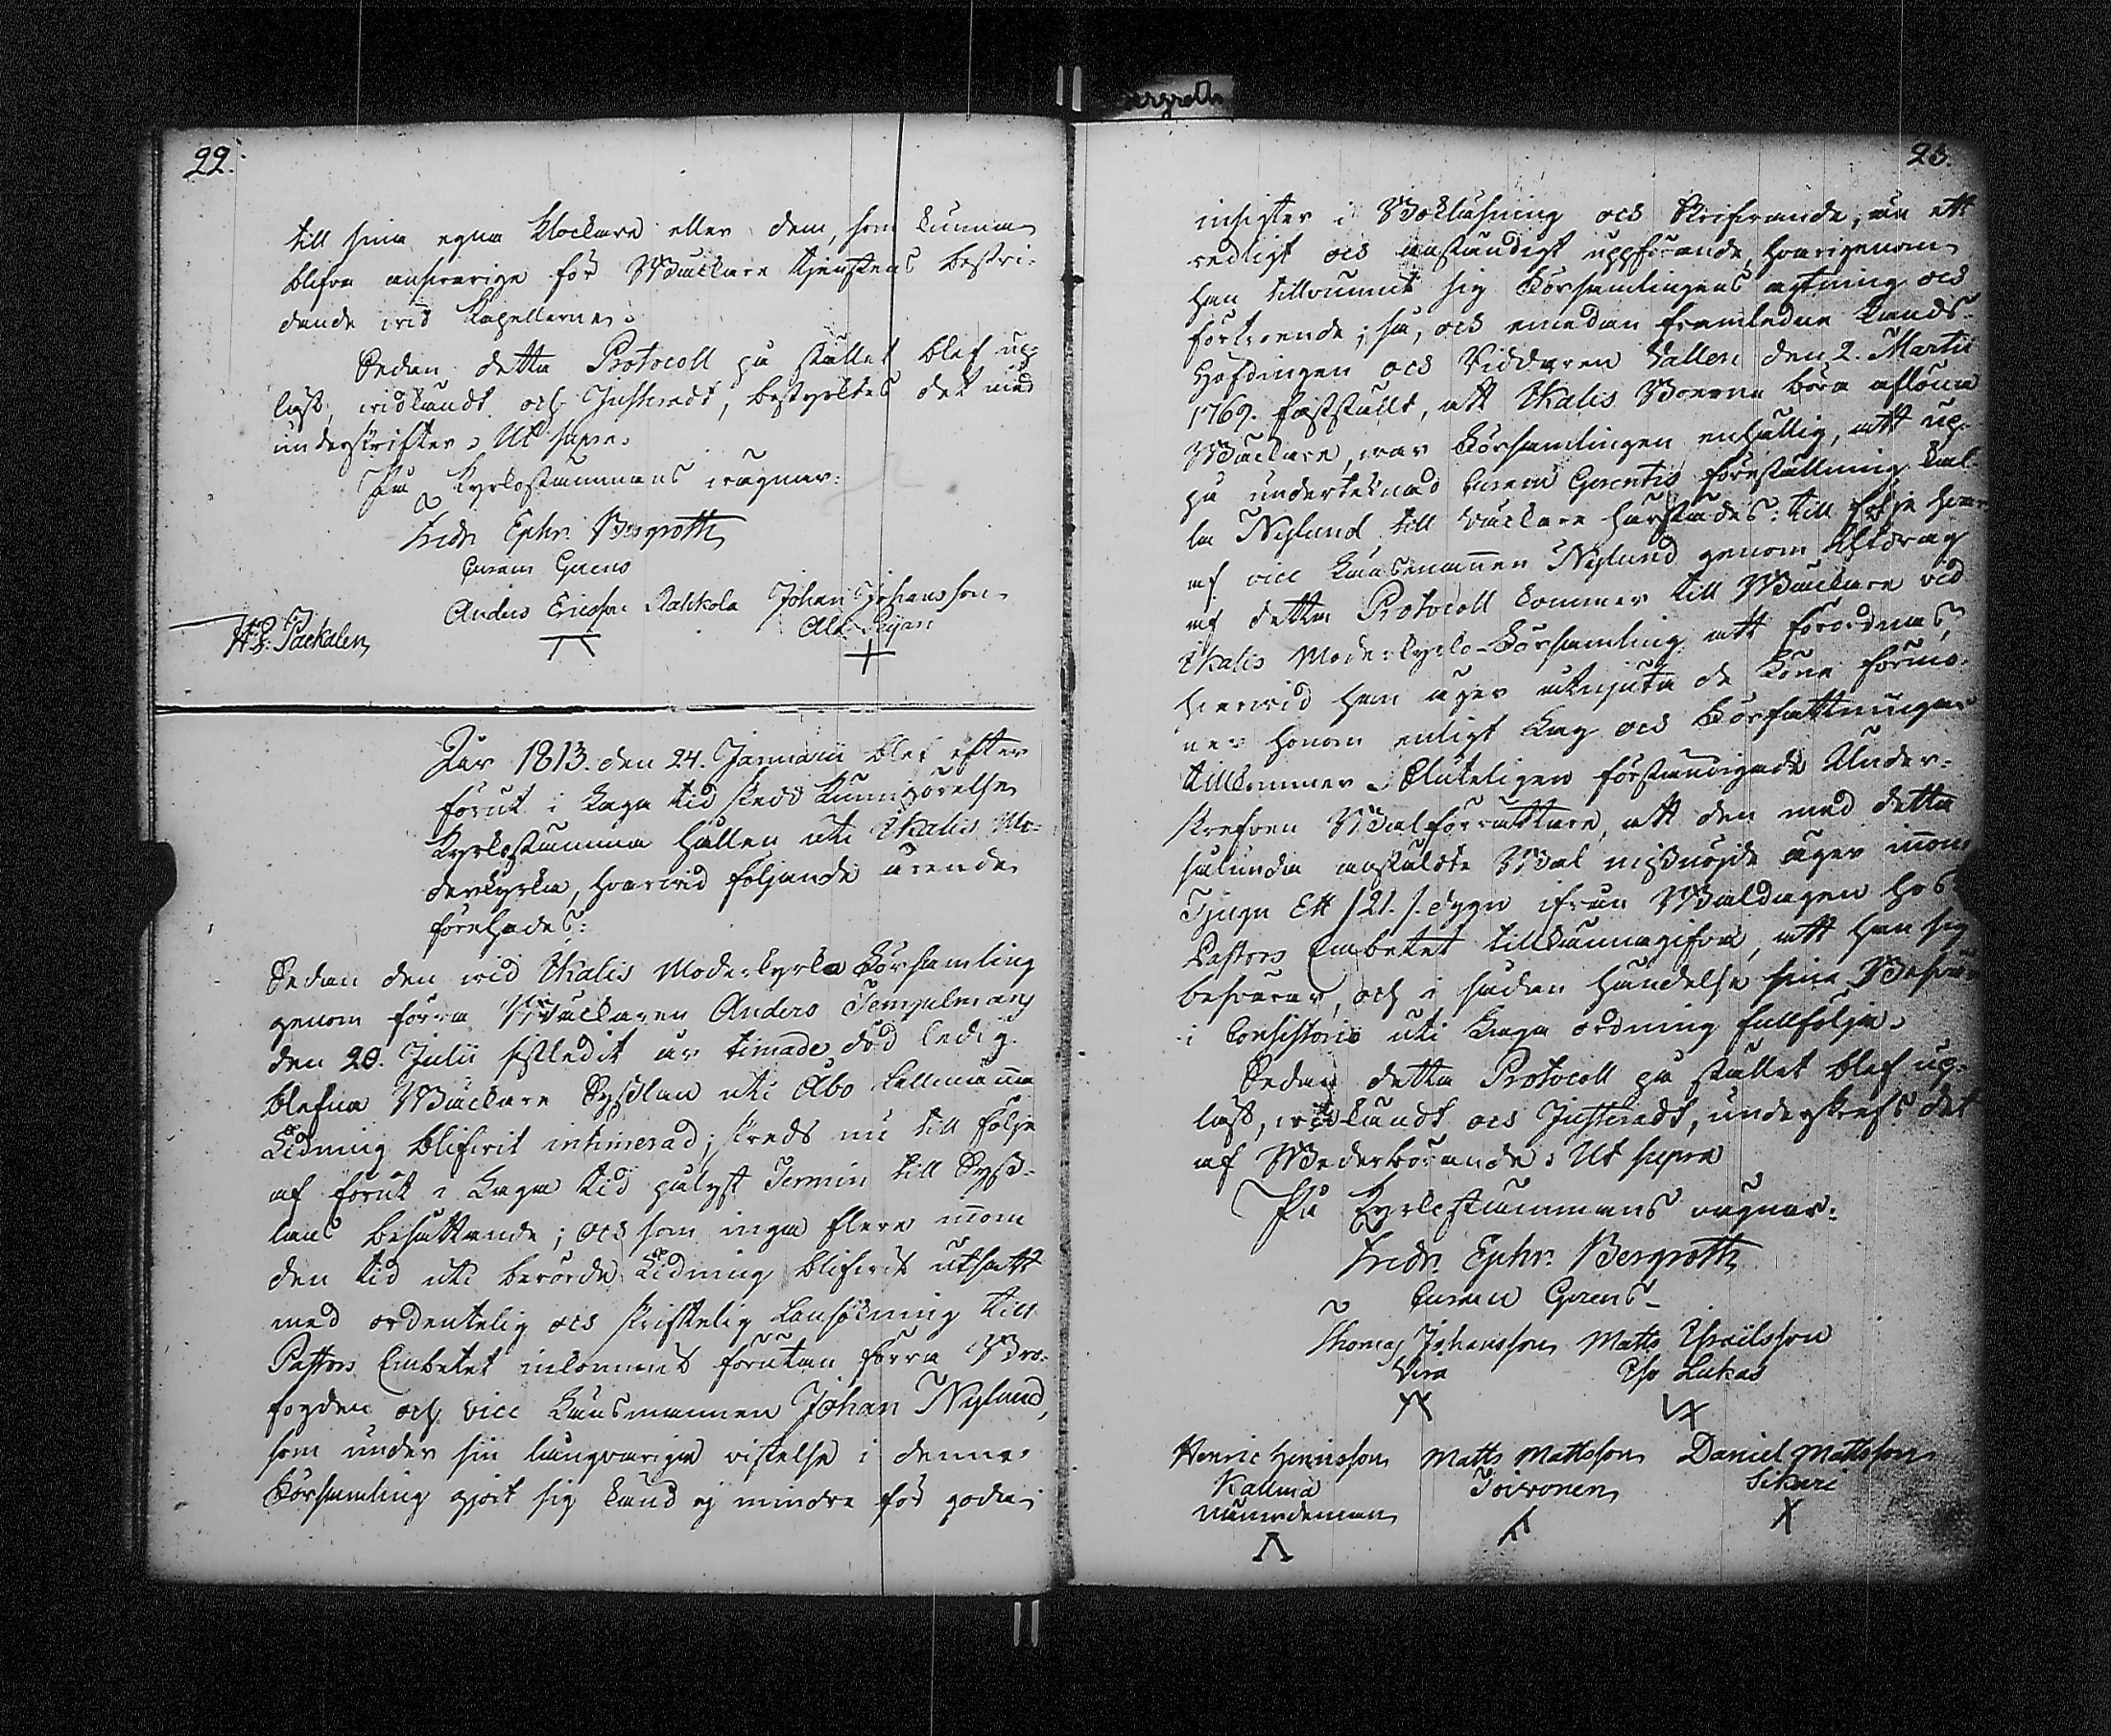 22.
till sina egna Klockare eller dem, som kunna
blifva ansvarige för Wäckare tjenstens bestri-
dande wid Kapellerne.
Sedan detta Protocoll på stället blef up-
läst, widkändt och Justeradt, bestyrktes det med
underskrifter. Ut supra.
På Kyrkostämmans wägnar:
Fredr. Ephr. Bergroth
Curam Gerens
H. Packalen, Anders Ericsson Rahkola Johan Johansson
Ala
År 1813. den 24. Januarii blef efter
förut i Laga tid skedd Kungörelse
Kyrkostämma hållen uti Ikalis Mo-
derkyrka, hvarwid följande ärende
förehades:
Sedan den wid Ikalis Moderkyrko Församling
genom förra Wäckaren Anders Tempelmans
den 28. Julii sistledit år timade död ledig
blefna Wäckare Sysslan uti Åbo Allmänna
Tidning blifwit intimerad; skreds nu till följe
af förut i Laga tid pålyst Termin till Syss-
lans besättande; och som inga flere inom
den tid uti berörde Tidning blifwit utsatt
med ordentelig och skriftelig Ansökning till
Pastors Embetet inkommit förutan förra Bro-
fogden och vice Länsmannen Johan Nylund,
som under sin långvariga vistelse i denna
Församling gjort sig känd ej mindre för goda
23.
insigter i Bokläsning och Skrifvande, än ett
redligt och anständigt uppförande, hvarigenom
han tillvunnit sig Församlingens agtning och
förtroende; så, och emedan framledne Lands-
Höfdingen och Riddaren Wallen den 2. Martii
1769. fastställt, att Ikalis Boerne böra aflöna
Wäckare, war Församlingen enhällig, att up-
på undertecknad Curam Gerentis föreställning kal-
la Nylund till Wäckare härstädes: till följe hvar-
af vice Länsmannen Nylund genom Utdrag
af detta Protocoll kommer till Wäckare vid
Ikalis Moderkyrko-Församling att förordnas,
hvarwid han äger åtnjuta de Löne förmo-
ner honom enligt Lag och Författningar
tillkommer. Sluteligen förständigade Under-
skrefven Walförrättare, att den med detta
sålunda anstäldte Wal missnöjde äger inom
Tjugu Ett /21./ dygn ifrån Waldagen hos
Pastors Embetet tillkännagifva, att han sig
beswärar, och i sådan händelse sina Beswär
i Consistorio uti Laga ordning fullfölja.
Sedan detta Protocoll på stället blef up-
läst, widkändt och Justeradt, underskrefs det
af Wederbörande. Ut supra
På Kyrkostämmans wägnar:
Fredr. Ephr. Bergroth
Curam Gerens
Thomas Johansson Matts Israelsson
Wira Iso Lukas
Henric Henricsson Matts Mattsson Daniel Mattsson
Kallma Toivonen Sikuri
nämndeman